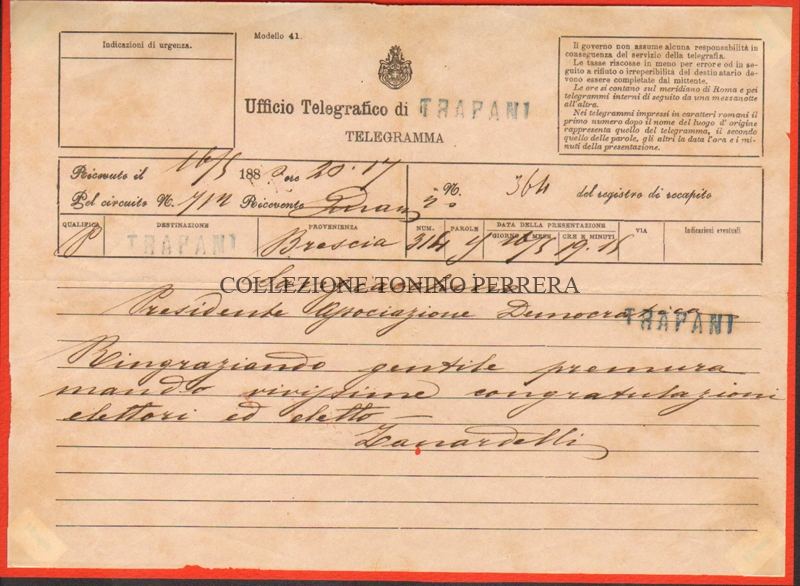 Indicazioni di urgenza.
Modello 41.
Il governo non assume alcuna responsabilità in
conseguenza del servizio della telegrafia.
Le tasse riscosse in meno per errore od in se-
guito a rifiuto o irreperibilità del destinatario de-
vono essere completate dal mittente.
Le ore si contano sul meridiano di Roma e pei
telegrammi interni di seguito da una mezzanotte
all'altra.
Nei telegrammi impressi in caratteri romani il
primo numero dopo il nome del luogo d'origine
rappresenta quello del telegramma, il secondo
quello delle parole, gli altri la data l'ora e i mi-
nuti della presentazione.
Ufficio Telegrafico di TRAPANI
TELEGRAMMA
Ricevuto il 16/5 188 ore 20.17
Pel circuito N. 712 Ricevente
N. 364 del registro di recapito
QUALIFICA DESTINAZIONE PROVENIENZA NUM. PAROLE DATA DELLA PRESENTAZIONE VIA Indicazioni eventuali
GIORNO E MESE ORE E MINUTI
P TRAPANI Brescia 314 16/5 19.15
COLLEZIONE TONINO PERRERA
Presidente Associazione Democratica
TRAPANI
Ringraziando gentile premura
mando vivissime congratulazioni
elettori ed eletto
Zanardelli